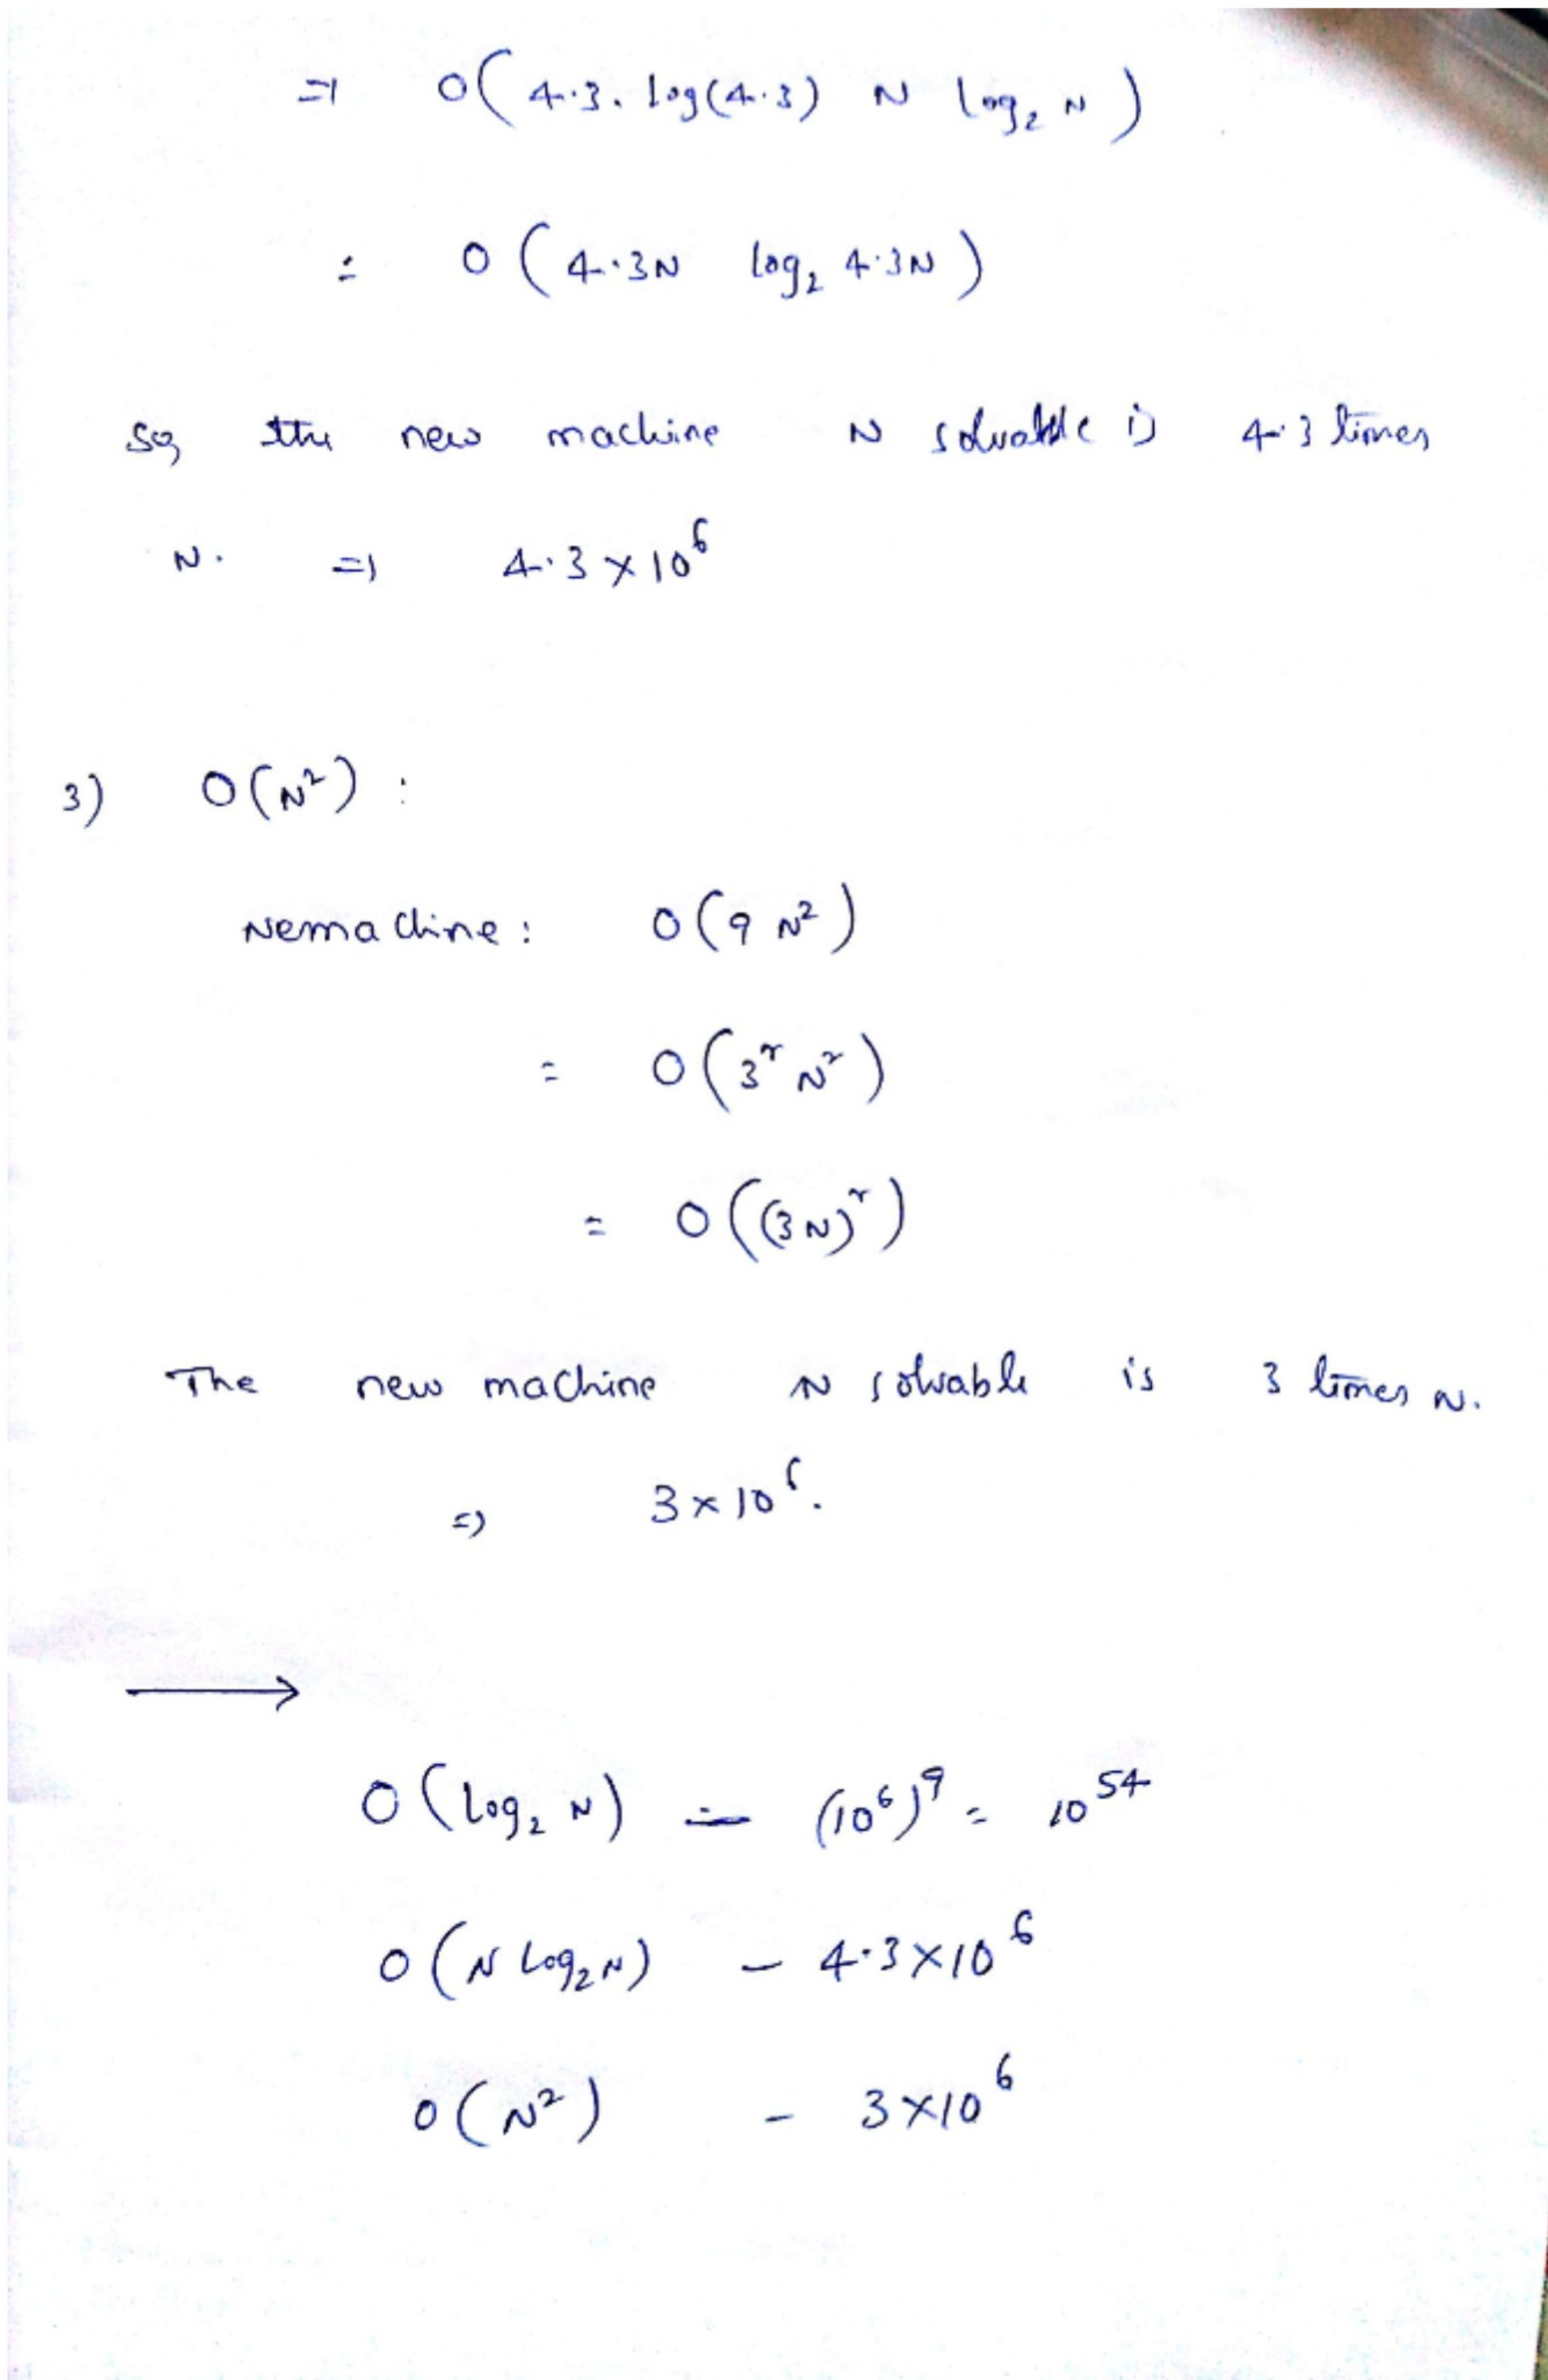 ⇒ O(4.3. log(4.3) N log₂ N)
= O(4.3N log₂ 4.3N)
So, the new machine N solvable is 4.3 times
N. ⇒ 4.3 × 10⁶
3) O(N²) :
Nemachine : O(9 N²)
= O(3² N²)
= O((3N)²)
The new machine N solvable is 3 times N.
⇒ 3 × 10⁶.
→
O(log₂ N) – (10⁶)⁹ = 10⁵⁴
O(N log₂ N) – 4.3 × 10⁶
O(N²) – 3 × 10⁶